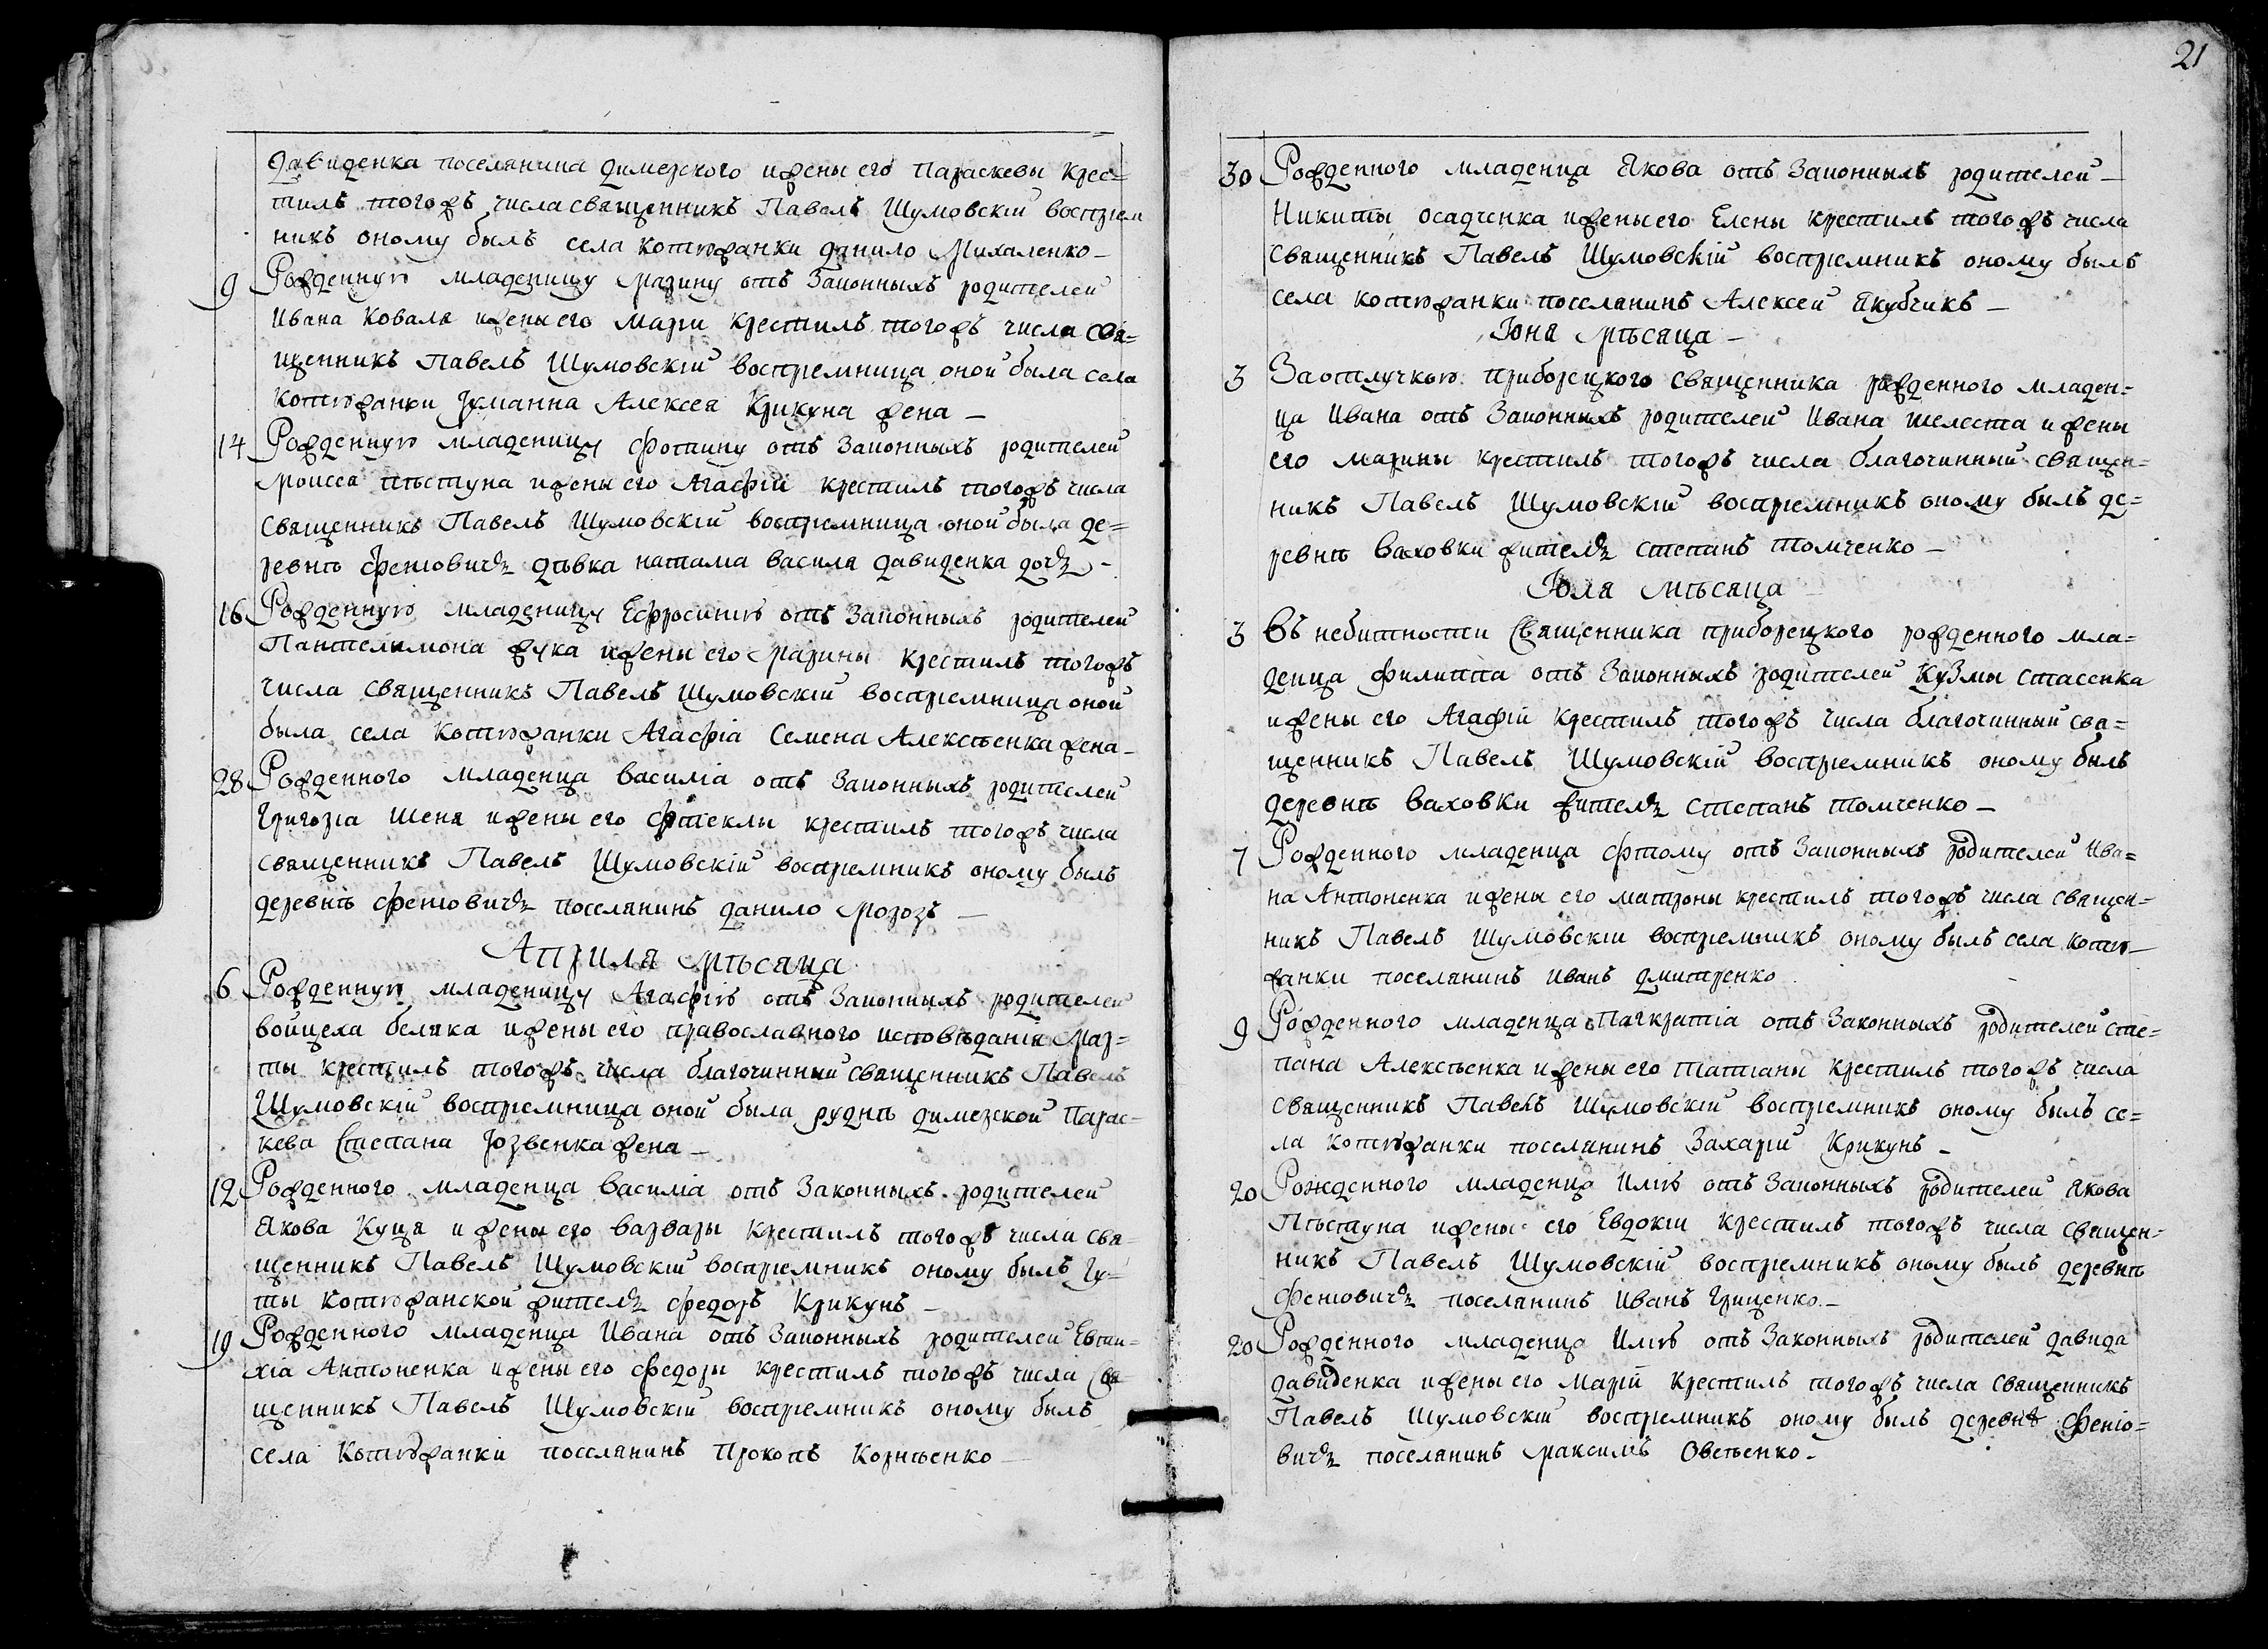 21
Давиденка поселянина димерского и жены его Параскевы крес=
тилъ тогожъ числа священникъ Павелъ Шумовскій воспріем
никъ оному былъ села Котюжанки Данило Михаленко —
9 Рожденную младеницу Марину отъ Законныхъ родителей
Ивана Коваля и жены его Маріи крестилъ тогожъ числа свя=
щенникъ Павелъ Шумовскій воспріемница оной была села
Котюжанки Іуліанна Алексея Крикуна жена —
14 Рожденную младеницу Фотину отъ Законныхъ родителей
Моисея Пѣстуна и жены его Агафіи крестилъ тогожъ числа
священникъ Павелъ Шумовскій воспріемница оной была де=
ревнѣ Феніовичъ дѣвка Наталиа Василя Давиденка дочь -
16 Рожденную младеницу Ефросинію отъ Законныхъ родителей
Пантелимона Жука и жены его Марины крестилъ тогожъ
числа священникъ Павелъ Шумовскій воспріемница оной
была села Котюжанки Агафіа Семена Алексѣенка жена —
28 Рожденного младенца Василіа отъ Законныхъ родителей
Григоріа Шеня и жены его Фтеклы крестилъ тогожъ числа
священникъ Павелъ Шумовскій воспріемникъ оному былъ
деревнѣ Феніовичъ поселянинъ Данило Морозъ —
Априля Мѣсяца
6 Рожденную младеницу Агафію отъ Законныхъ родителей
Войцеха Беляка и жены его православного исповѣданія Мар=
ты крестилъ тогожъ числа благочинный священникъ Павелъ
Шумовскій воспріемница оной была руднѣ димерской Парас-
кева Степана Іозвенка жена —
12 Рожденного младенца Василіа отъ Законныхъ родителей
Якова Куця и жены его Варвары крестилъ тогожъ числа свя-
щенникъ Павелъ Шумовскій воспріемникъ оному былъ Гу=
ты Котюжанской житель Федоръ Крикунъ —
19 Рожденного младенца Ивана отъ Законныхъ родителей Евти=
хіа Антоненка и жены его Федоры крестилъ тогожъ числа Свя
щенникъ Павелъ Шумовскій воспріемникъ оному былъ
села Котюжанки поселянинъ Прокопъ Корнѣенко —
30 Рожденного младенца Якова отъ Законныхъ родителей —
Никиты Осадченка и жены его Елены крестилъ тогожъ числа
священникъ Павелъ Шумовскій воспріемникъ оному былъ
села Котюжанки поселянинъ Алексей Якубчикъ —
Іюня Мѣсяца —
3 За отлучкою приборецкого священника рожденного младен=
ца Ивана отъ Законныхъ родителей Ивана Шелеста и жены
его Марины крестилъ тогожъ числа благочинный священ-
никъ Павелъ Шумовскій воспріемникъ оному былъ де=
ревнѣ Ваховки житель Степанъ Томченко —
Іюля мѣсяца
3 Въ небитности Священника приборецкого рожденного мла=
денца Филиппа отъ Законныхъ родителей Кузмы Стасенка
и жены его Агафіи крестилъ тогожъ числа благочинный свя=
щенникъ Павелъ Шумовскій воспріемникъ оному былъ
деревнѣ Ваховки житель Степанъ Томченко —
7 Рожденного младенца Фтому отъ Законныхъ родителей Ива=
на Антоненка и жены его Матроны крестилъ тогожъ числа священ=
никъ Павелъ Шумовскій воспріемникъ оному былъ села Котю—
жанки поселянинъ Иванъ Дмитренко
9 Рожденного младенца Пагкратіа отъ Законныхъ родителей Сте=
пана Алексѣенка и жены его Татіаны крестилъ тогожъ числа
священникъ Павелъ Шумовскій воспріемникъ оному былъ се=
ла Котюжанки поселянинъ Захарій Крикунъ —
20 Рожденного младенца Илію отъ Законныхъ родителей Якова
Пѣстуна и жены его Евдокіи крестилъ тогожъ числа священ=
никъ Павелъ Шумовскій воспріемникъ оному былъ деревнѣ
Феніовичъ поселянинъ Иванъ Гриценко —
20 Рожденного младенца Илію отъ Законныхъ родителей Давида
Давиденка и жены его Маріи крестилъ тогожъ числа священникъ
Павелъ Шумовскій воспріемникъ оному былъ деревнѣ Феніо=
вичъ поселянинъ Максимъ Овсѣенко -